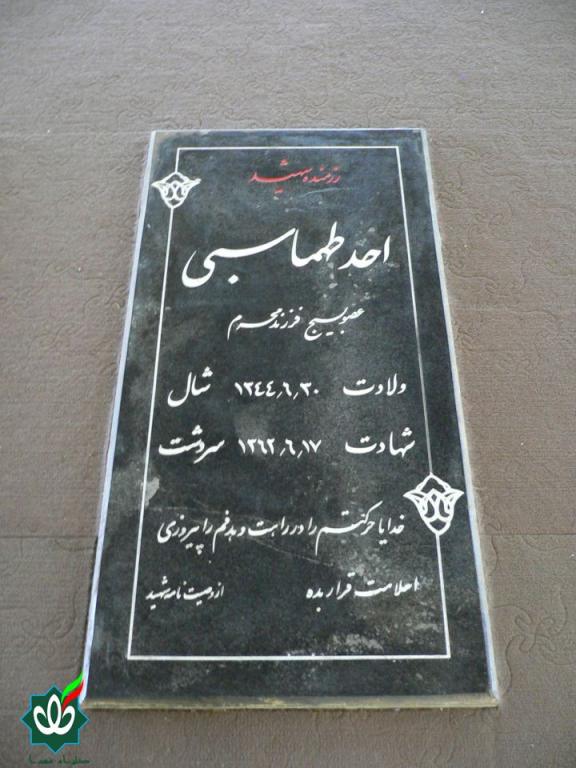 رزمنده شهید
احد طهماسبی
عضو بسیج فرزند محرم
ولادت ۱۳۴۴٫۶٫۳۰ شال
شهادت ۱۳۶۲٫۶٫۱۷ سردشت
خدایا حرکتم را در راهت و هدفم را پیروزی
اسلامت قرار بده از وصیت نامه شهید